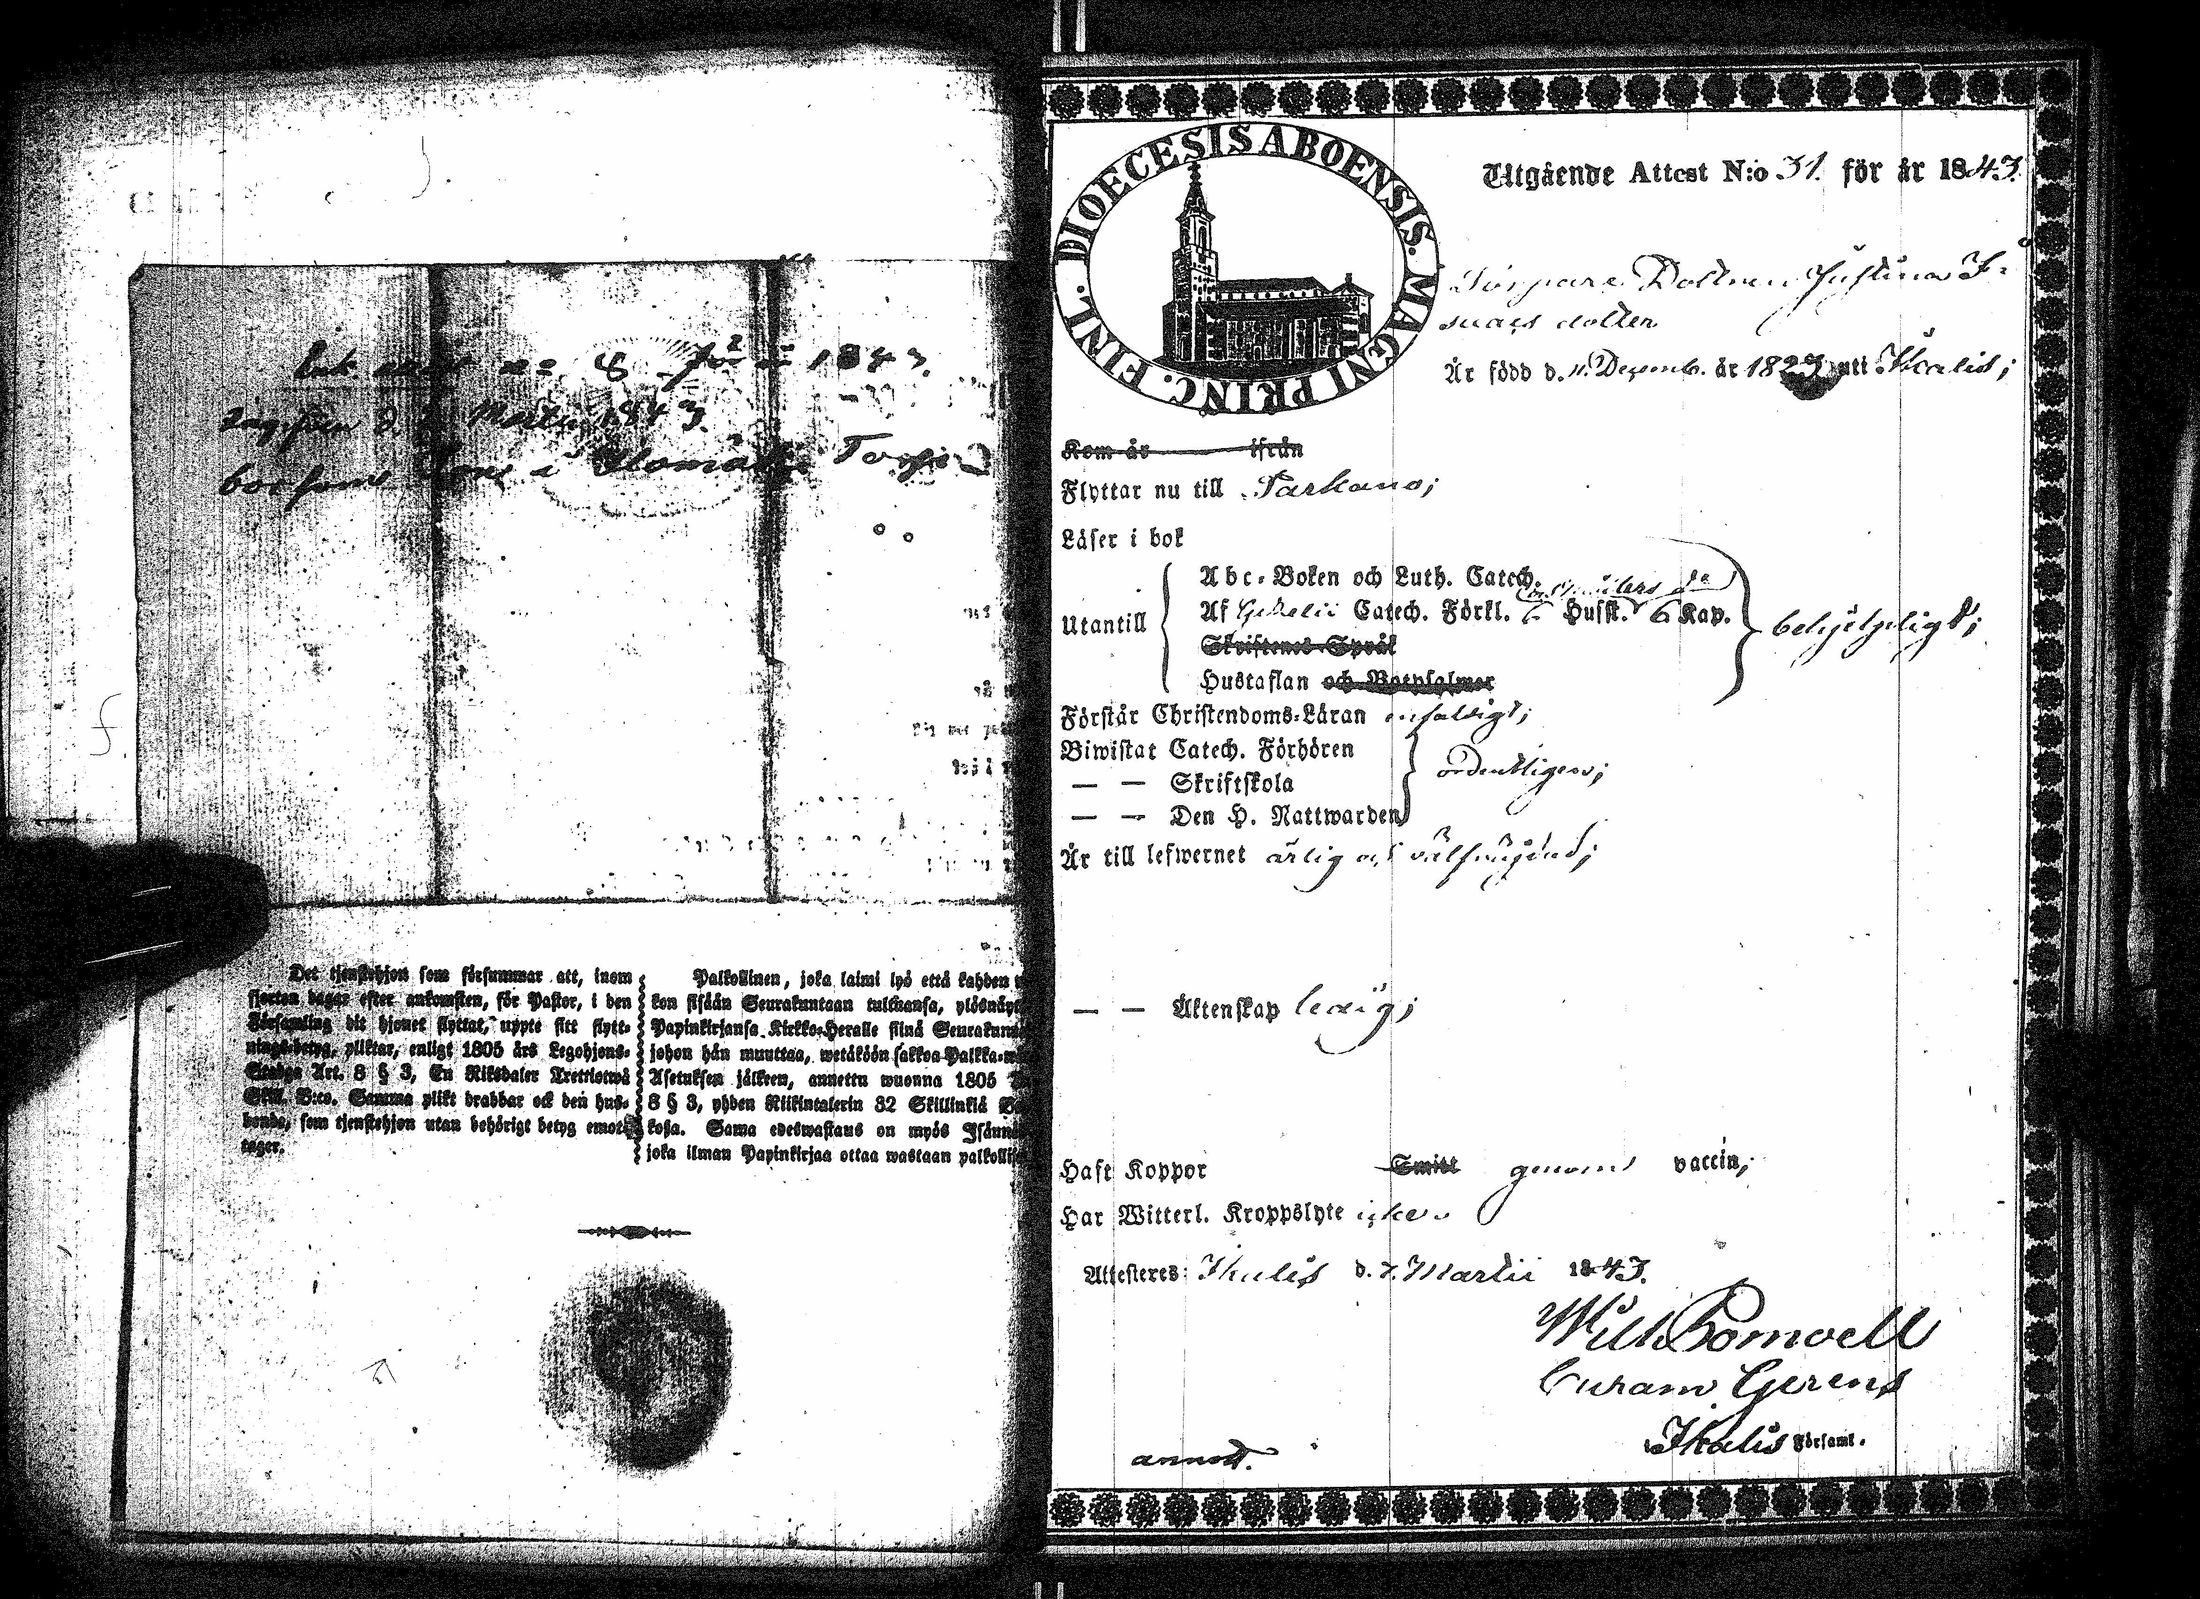 för 1843.
d. Martii 1843.
i
Det tjenstehjon som försummar att, inom
fjorton dagar efter ankomsten, för Pastor, i den
Församling dit hjonet flyttat, uppte sitt flytt-
nings-betyg, pliktar, enligt 1805 års Legohjons-
Stadga Art. 8 § 3, En Riksdaler Trettiotwå
Skill. B:co. Samma plikt drabbar ock den hus-
bonde, som tjenstehjon utan behörigt betyg emot-
tager.
Palkollinen, joka laimi lyö että kahden
kon sisään Seurakuntaan tultuansa, ylösnäyt
Papinkirjansa Kirkko-Heralle siinä Seurakun
johon hän muuttaa, wetäköön sakkoa Palkka-
Asetuksen jälkeen, annettu wuonna 1805
8 § 3, yhden Riikintalerin 32 Skillinkiä
kosa. Sama edeswastaus on myös Isännä
joka ilman Papinkirjaa ottaa wastaan palkollis
DIOECESIS ABOENSIS. MAGNI PRINC. FINL.
Utgående Attest N:o 31. för år 1843.
Dottren Justina I-
sacs dotter
Är född d. 11. Decemb. år 1827 uti Ikalis;
Kom år ifrån
Flyttar nu till Parkano;
Läser i bok
Utantill
Abc-Boken och Luth. Catech.
Af Gezelii Catech. Förkl. Hufst. 6 Kap.
Skriftenes Språk
Hustaflan och Botpsalmer
behjelpeligt;
Förstår Christendoms-Läran enfaldigt;
Biwistat Catech. Förhören
— — Skriftskola
— — Den H. Nattwarden
ordentligen;
Är till lefwernet ärlig och välfräjdad;
— — Äktenskap ledig;
Haft Koppor Smitt genom vaccin;
Har Witterl. Kroppslyte icke.
Attesteres: Ikalis d. 7. Martii 1843.
Wilh.
Curam Gerens
Ikalis Församl.
annot.